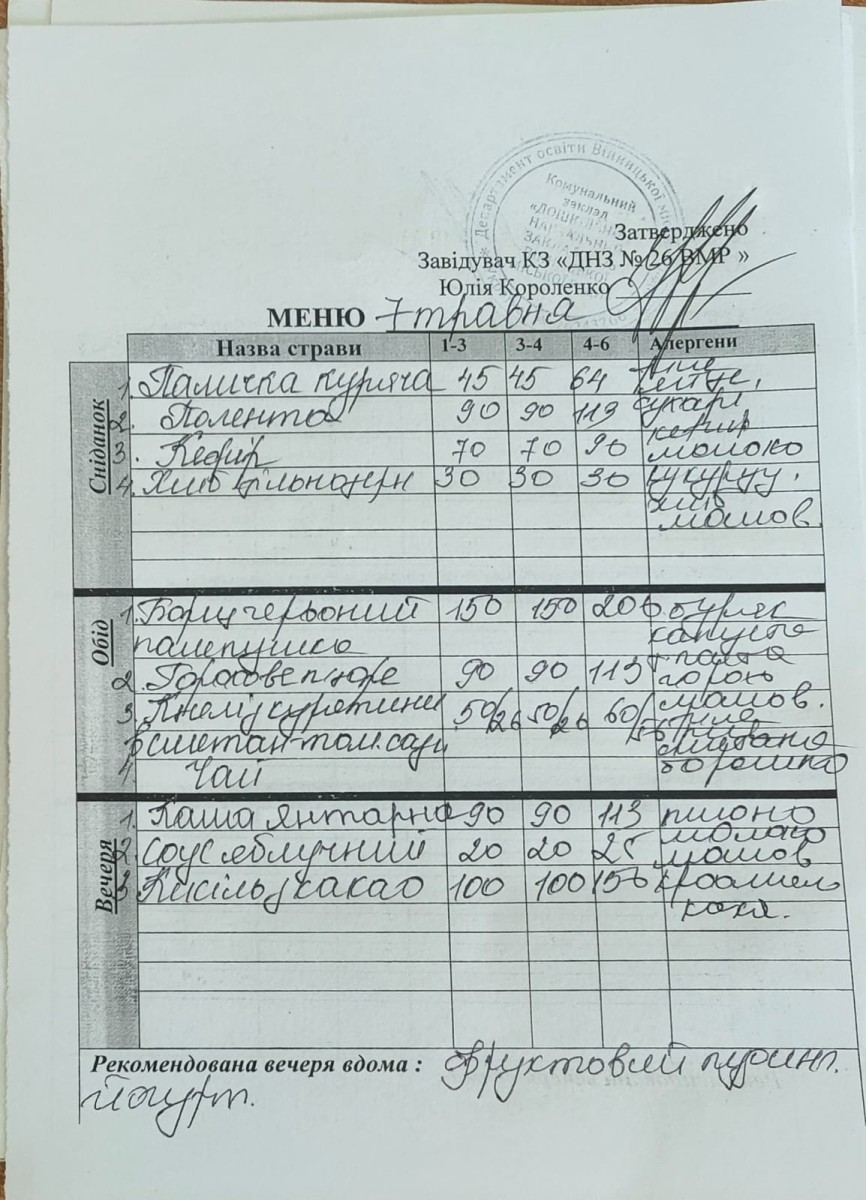 Департамент освіти Вінницької міс
Комунальний
заклад
Затверджено
Завідувач КЗ «ДНЗ № 26 ВМР »
Юлія Короленко
МЕНЮ 7 травня
Назва страви 1-3 3-4 4-6 Алергени
Сніданок
1. Паличка куряча 45 45 64 яйце
2. Полента 90 90 113 сухарі
кефир
3. Кефір 70 70 90 молоко
4. Хліб цільнозерн 30 30 30 кукурудз.
хліб
маслов.
Обід
1. Борщ червоний 150 150 200 буряк
пампушка капуста
паста
2. Горохове пюре 90 90 113 горох
маслов.
3. 50/26 50/26 60/
в сметан-том. соусі сметана
4. Чай борошно
Вечеря
1. Каша янтарна 90 90 113 пшоно
молоко
2. Соус яблучний 20 20 25 маслов
3. Кисіль з какао 100 100 150 крохмаль
какао.
Рекомендована вечеря вдома : Фруктовий пудинг.
йогурт.